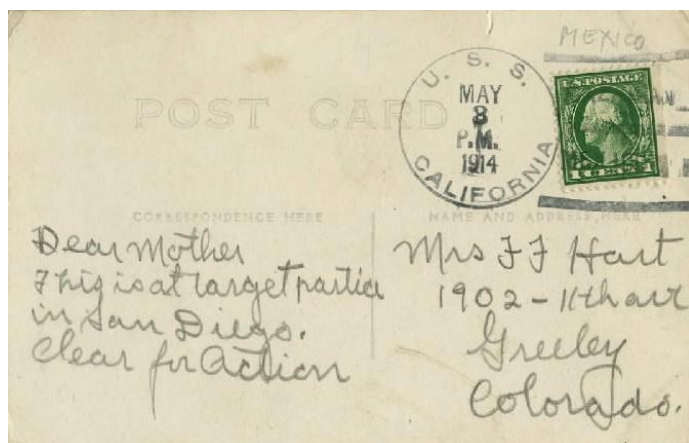 MEXICO
U. S. S.
MAY
8
P.M.
1914
CALIFORNIA
U.S. POSTAGE
1 CENT 1
POST CARD
CORRESPONDENCE HERE
NAME AND ADDRESS HERE
Dear Mother
This is at target partice
in San Diego.
Clear for Action
Mrs F F Hart
1902 - 11th ave
Greeley
Colorado.